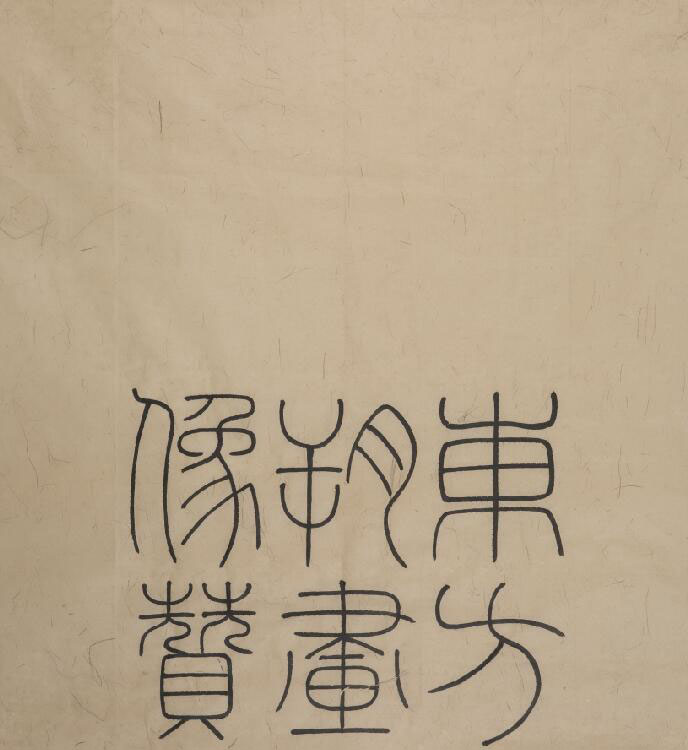 東方
朔畫
像贊